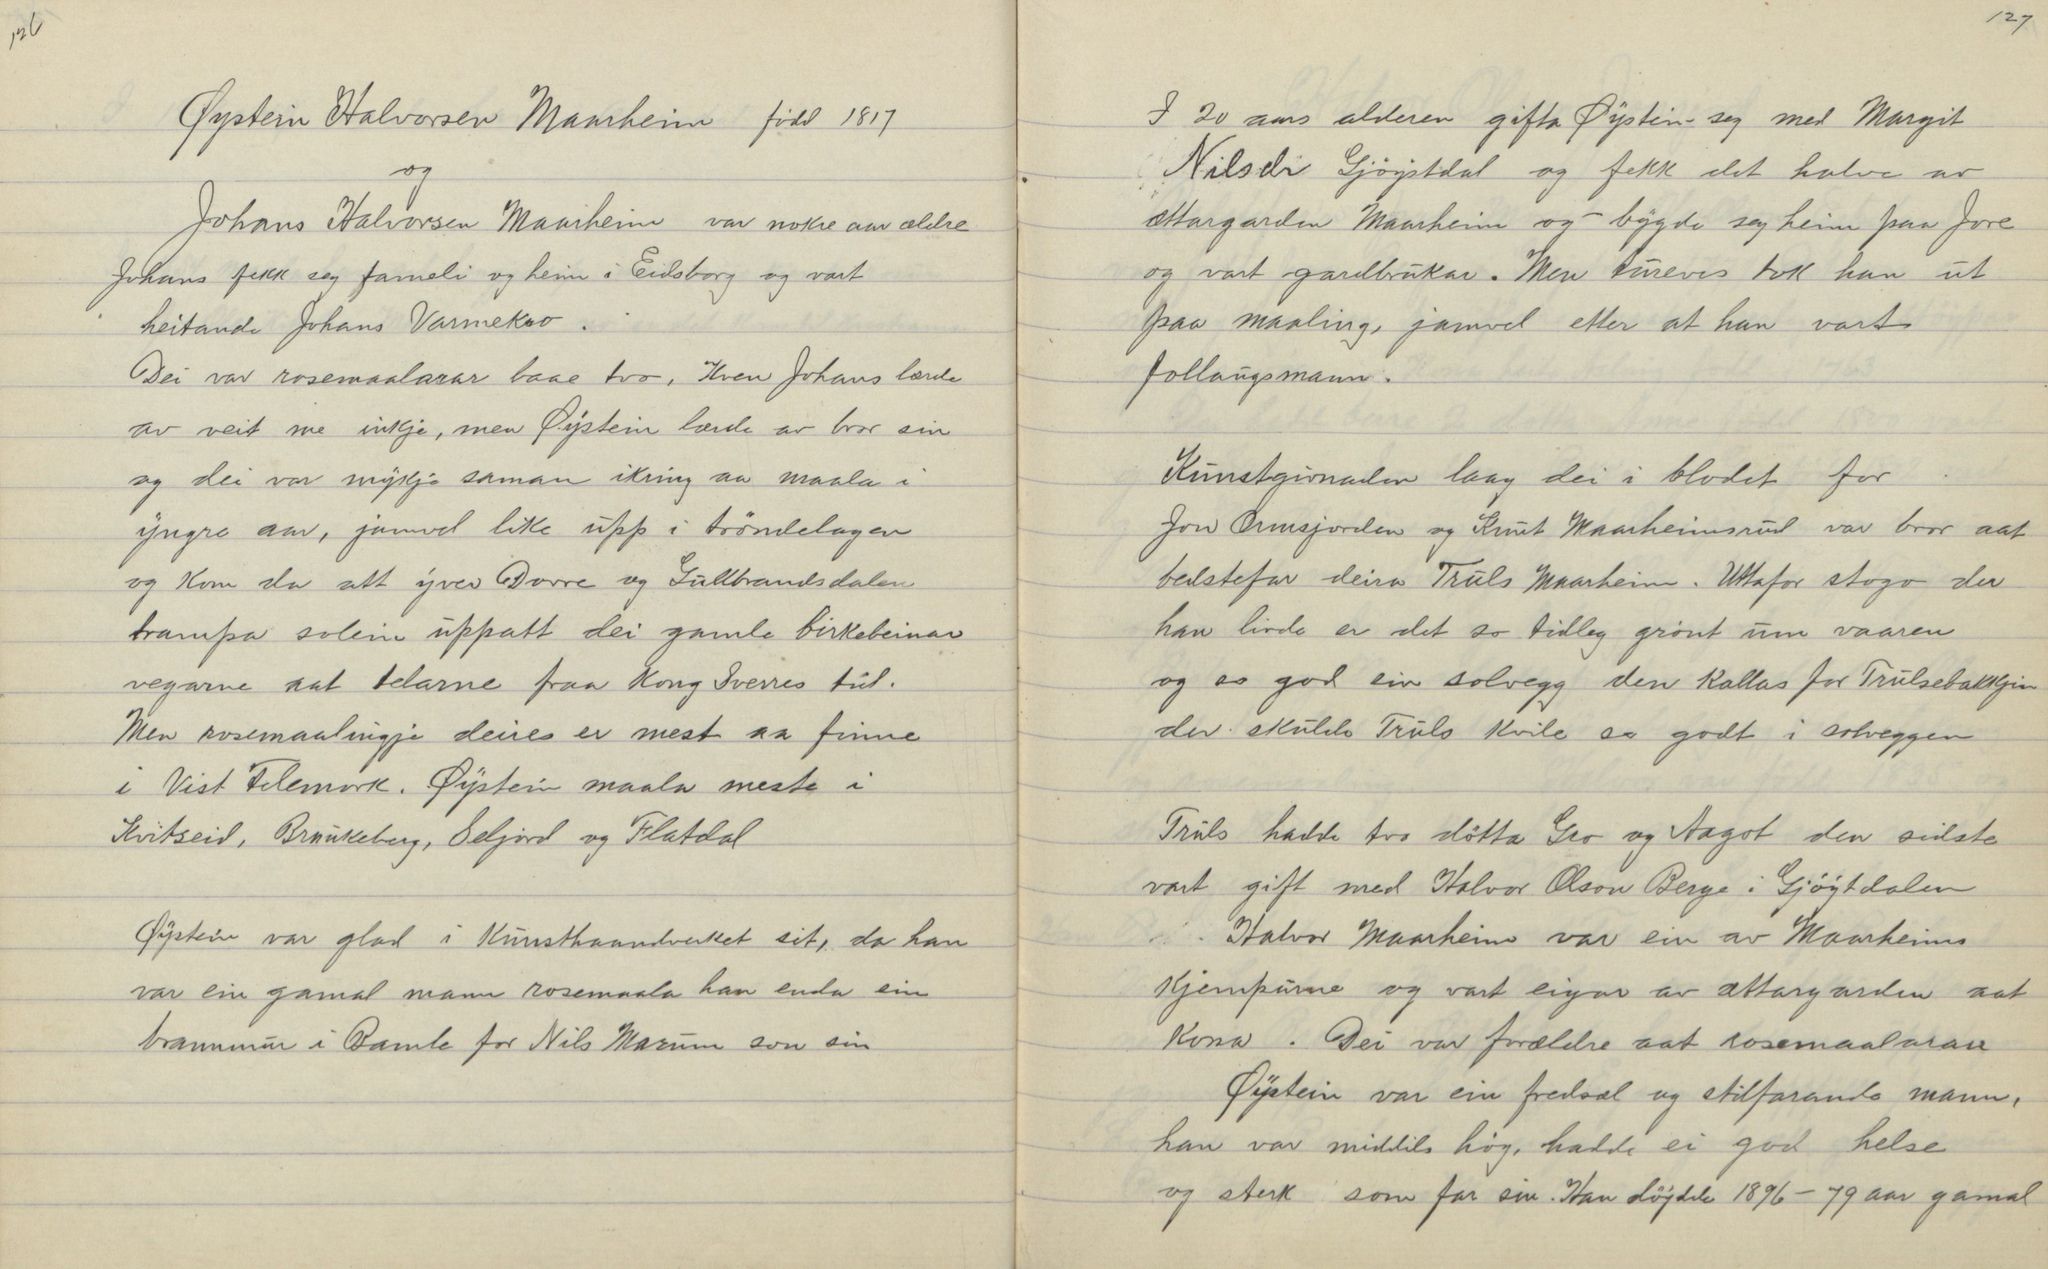 126
Øystein Halvorsen Maarheim född 1817
og
Johans Halvorsen Maarheim var nokre aar ældre
Johans fekk seg fameli og heim i Eidsborg og vart
heitande Johans Varmekao.
Dei var rosemaalarar baae two, Kven Johans lærde
av veit me inkje, men Øystein lærde av bror sin
og dei var mykje saman ikring aa maala i
yngre aar, jamvel like upp i tröndelagen
og kom da att yver Dovre og Gulbrandsdalen
trampa solein uppatt dei gamle birkebeinar
vegarne aat telarne fraa Kong Sverres tid.
Men rosemaalingje deires er mest aa finne
i Vist Telemork. Øystein maala meste i
Kvitseid, Brunkeberg, Seljord og Flatdal
Øystein var glad i Kunsthaandverket sit, da han
var ein gamal mann rosemaala han enda ein
brannmur i Bamle for Nils Marum son sin
127
I 20 aars alderen gifta Øystein seg med Margit
Nilsdr Gjöystdal og fekk det halve av
ættargarden Maarheim og bygde seg heim paa Jore
og vart gardbrukar. Men tureves tok han ut
paa maaling, jamvel etter at han vart
follaugsmann.
Kunstgivnaden laag dei i blodet for
Jon Ormsjorden og Knut Maarheimsrud var bror aat
bedstefar deira Truls Maarheim. Uttafor stogo der
han livde er det so tidleg grönt um vaaren
og so god ein solvegg den kallas for Trulsebakkjin
der skulde Truls kvile so godt i solveggen
Truls hadde two dötta Gro og Aagot den sidste
vart gift med Halvor Olson Berge i Gjöytdalen
Halvor Maarheim var ein av Maarheims
kjempurne og vart eigar av ættargarden aat
Kona. Dei var forældre aat rosemaalarane
Øystein var ein fredsæl og stilfarande mann,
han var middels hög, hadde ei god helse
og sterk som far sin. Han döydde 1896 - 79 aar gamal